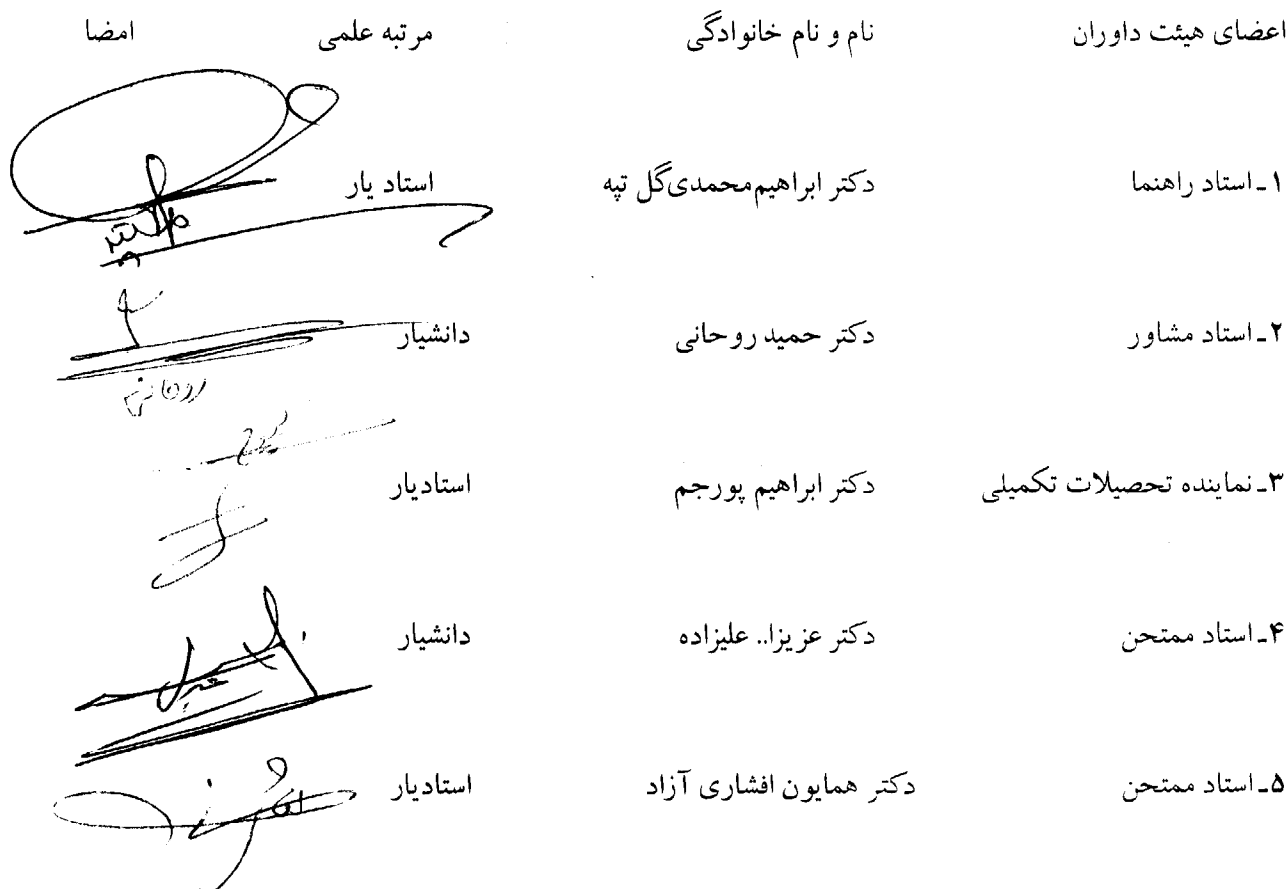 اعضای هیئت داوران نام و نام خانوادگی مرتبه علمی امضا
۱ـ استاد راهنما دکتر ابراهیم محمدی گل تپه استاد یار
۲ـ استاد مشاور دکتر حمید روحانی دانشیار
روحانی
۳ـ نماینده تحصیلات تکمیلی دکتر ابراهیم پورجم استادیار
۴ـ استاد ممتحن دکتر عزیزا.. علیزاده دانشیار
۵ـ استاد ممتحن دکتر همایون افشاری آزاد استادیار